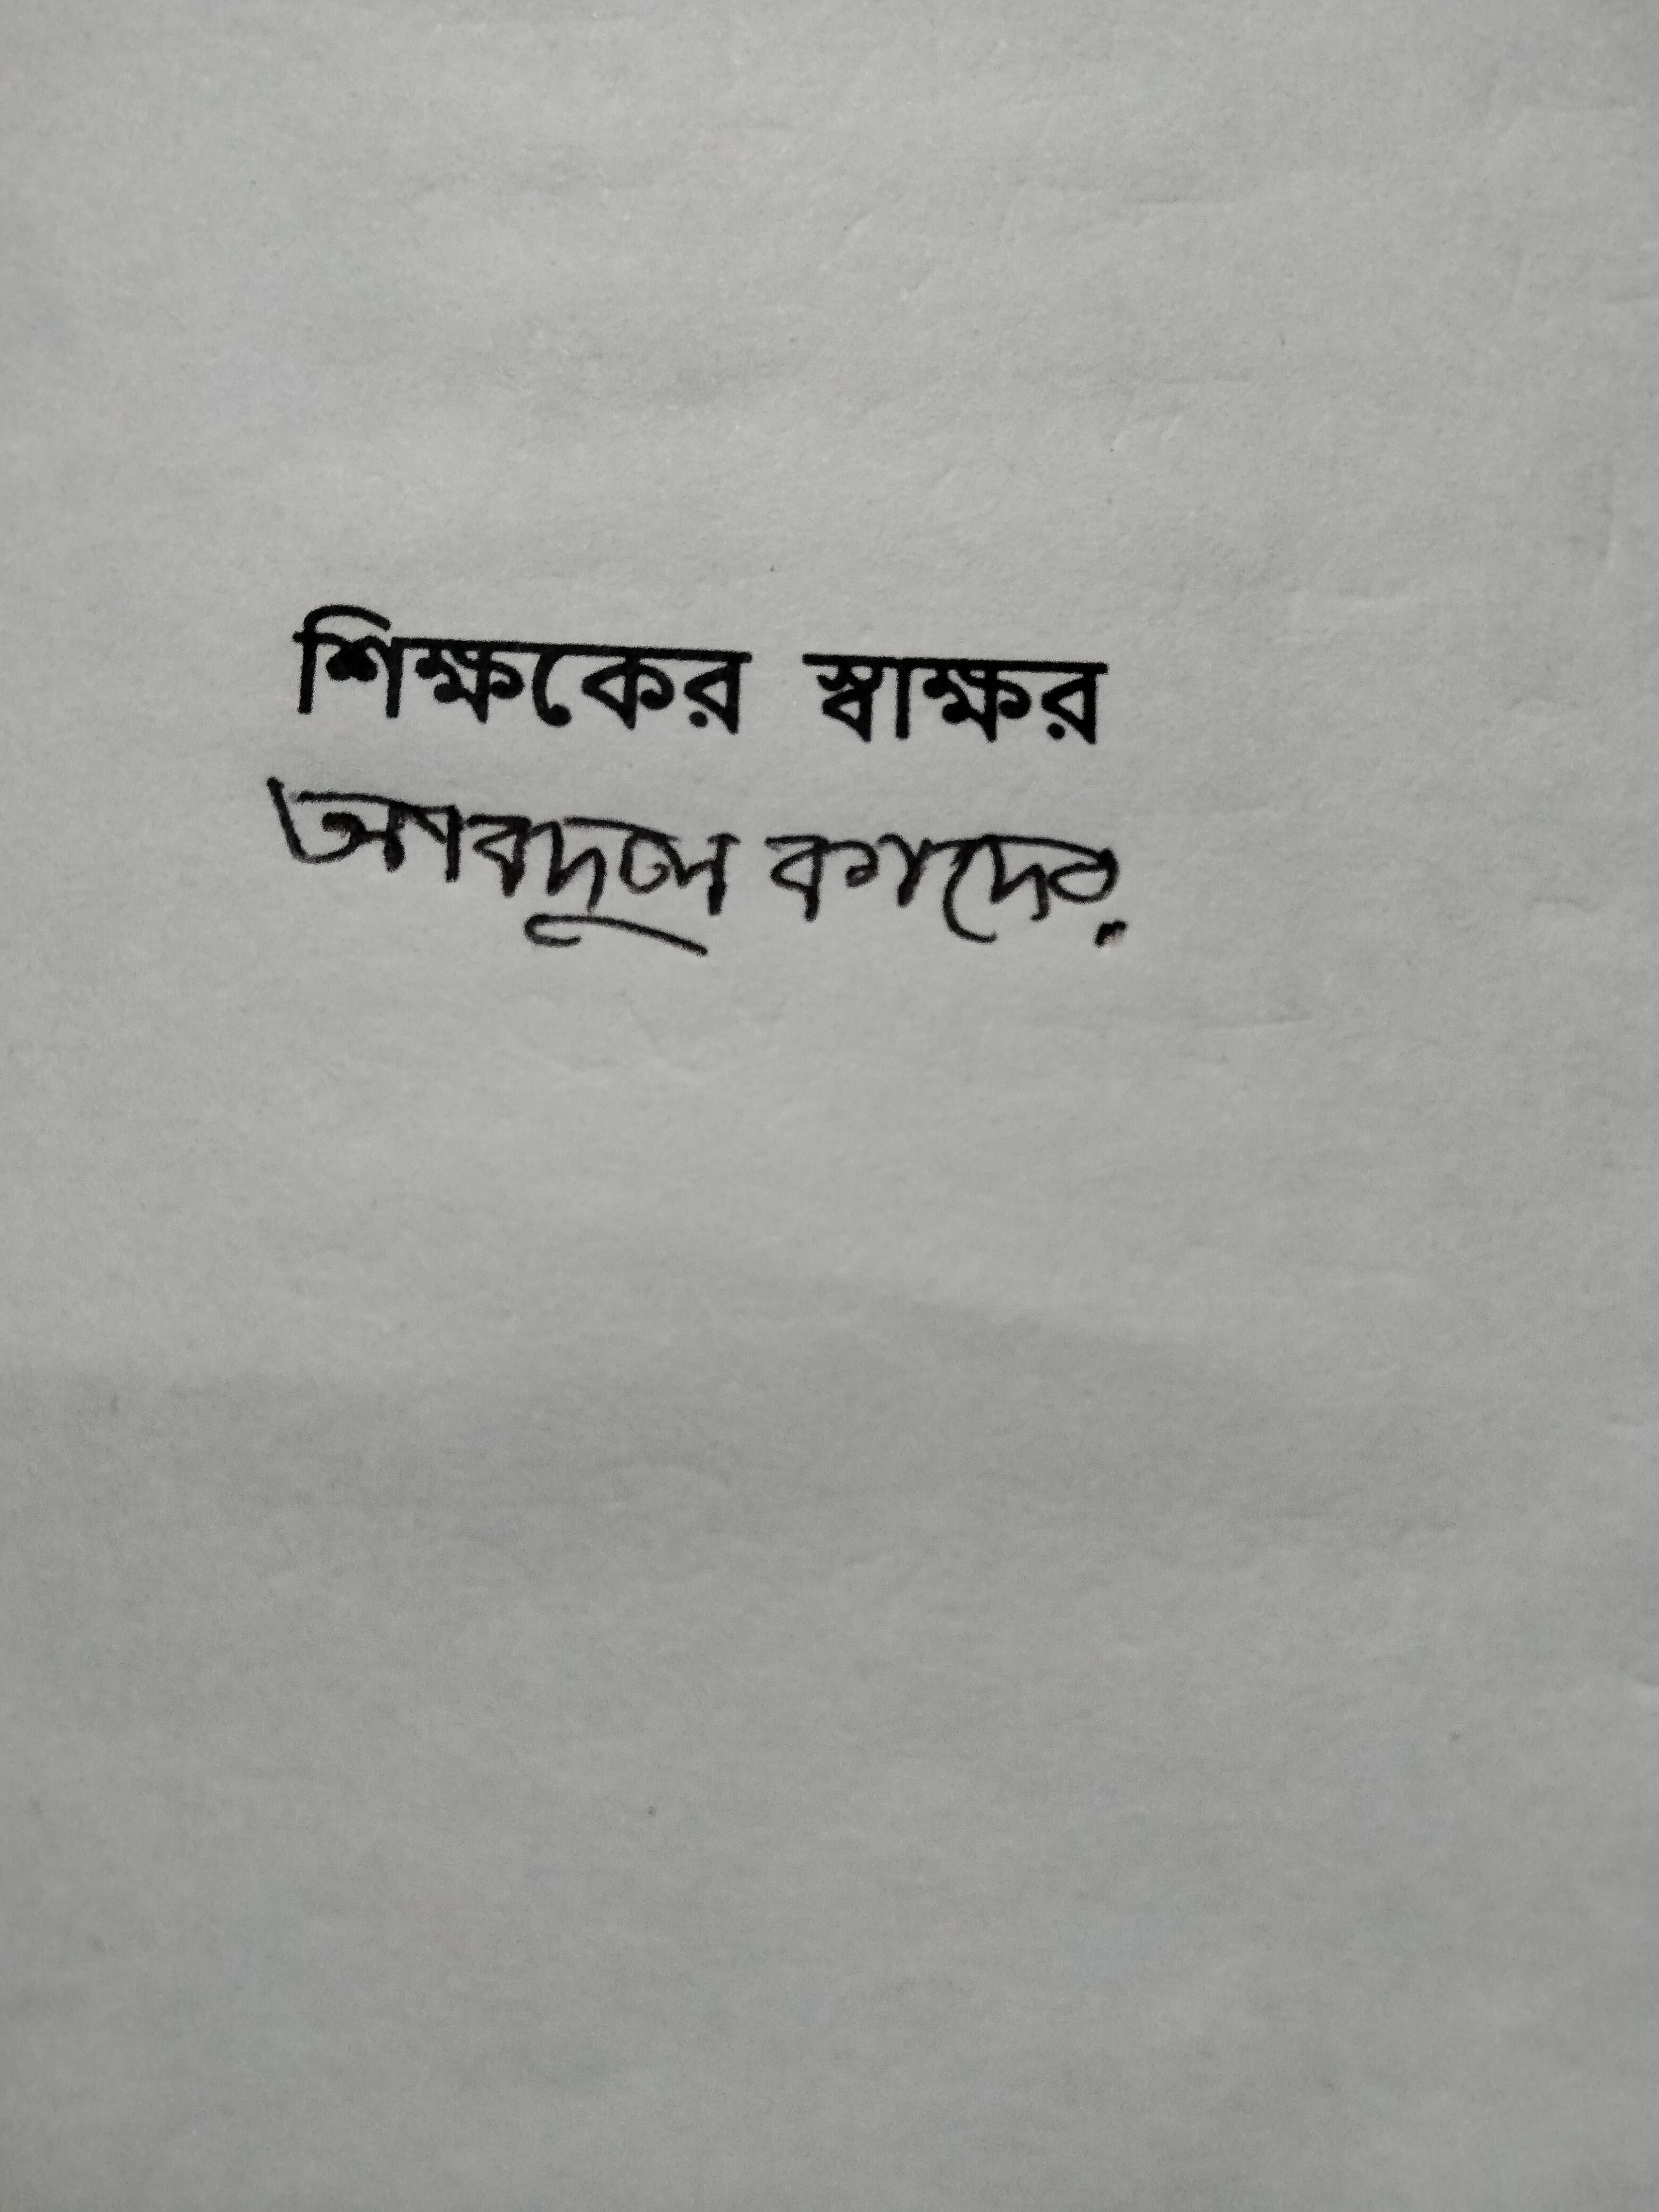 শিক্ষকের স্বাক্ষর
আবদুল কাদের